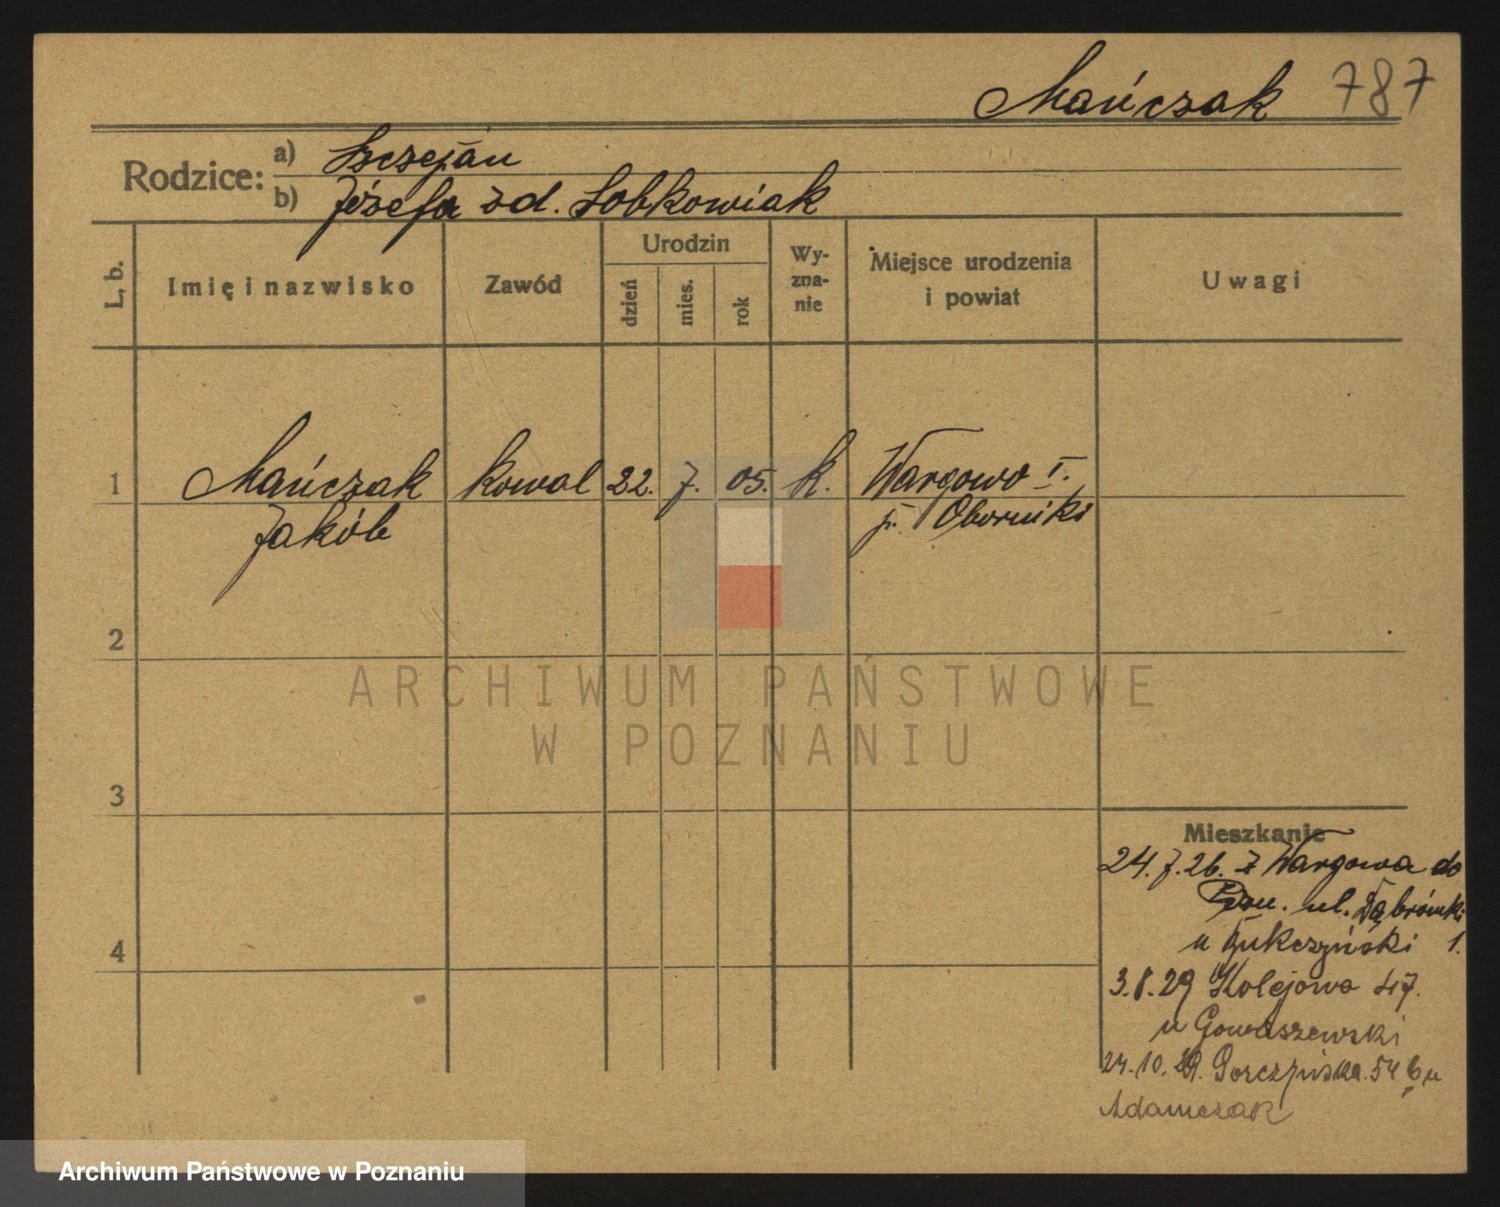 Mańczak 787
Rodzice: a) Szczepan
b) Józefa zd. Sobkowiak
L. b. Imię i nazwisko Zawód Urodzin dzień mies. rok Wy-zna-nie Miejsce urodzenia i powiat Uwagi
1 Mańczak kowal 22. 7. 05. k. Wargowo I.
Jakób p. Oborniki
2
3
4
Mieszkanie
24.7.26. z Wargowa do
Pozn. ul. Dąbrówki
u 1.
3.8.29 Kolejowa 47.
u
24.10.29. Gorczyńska 54 u
Adamczak
ARCHIWUM PAŃSTWOWE
W POZNANIU
Archiwum Państwowe w Poznaniu